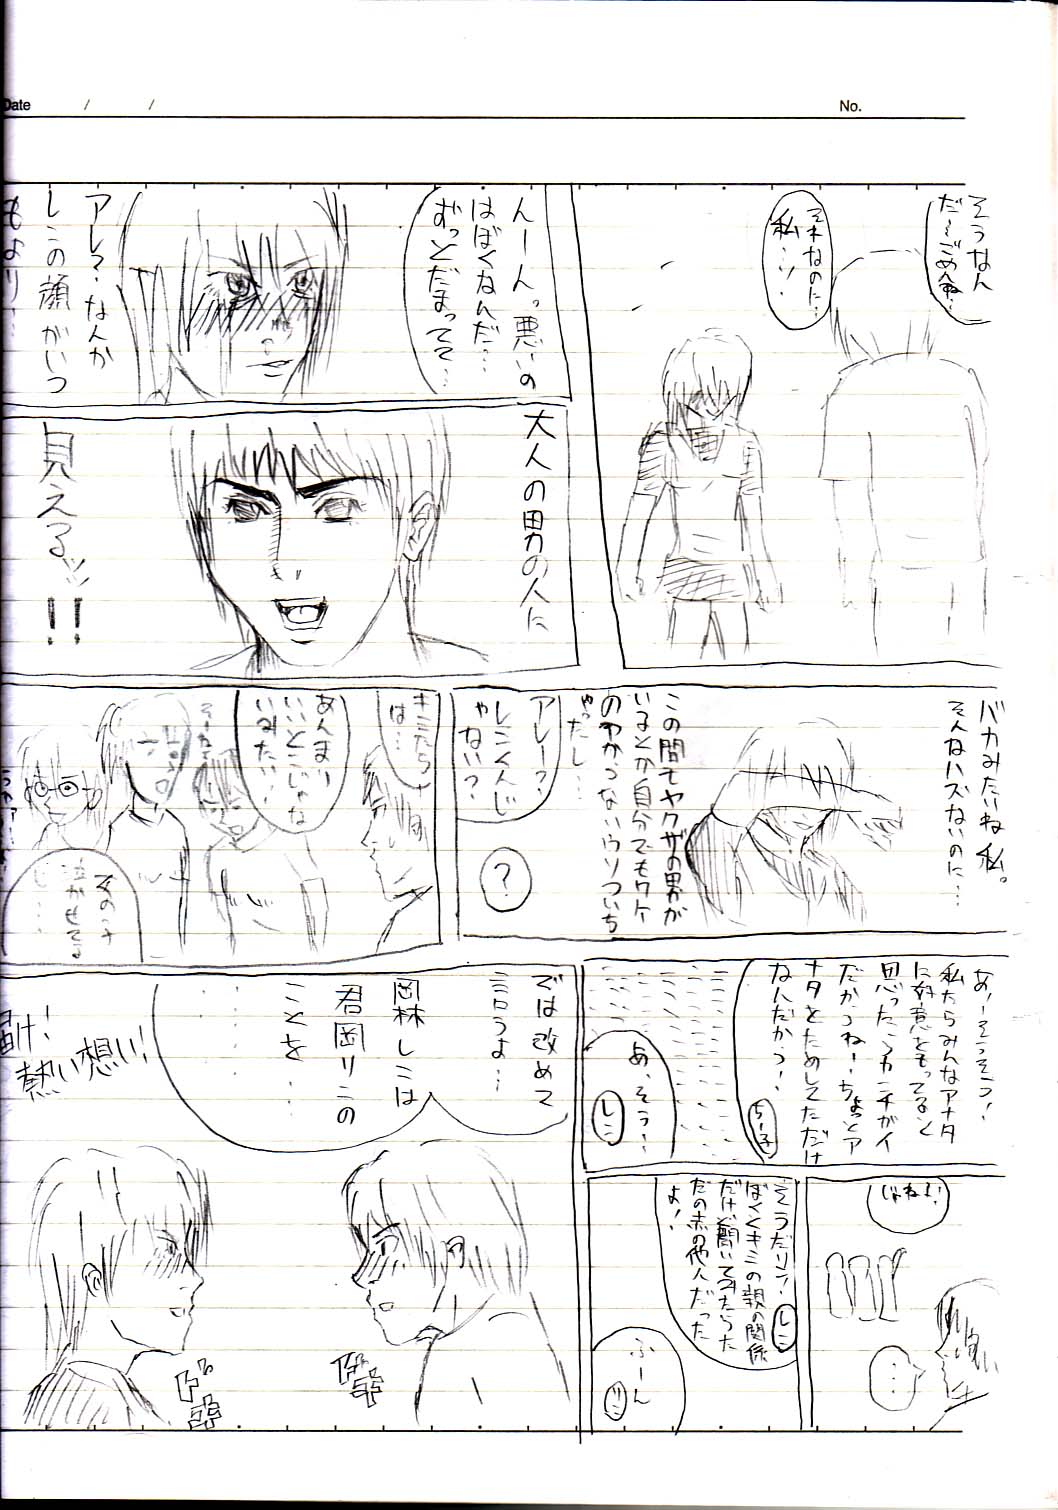 Date / /
No.
そうなん
だ〜ごめんね…
それなのに…
私…ソ…
んーんっ悪いの
はぼくなんだ…
ずっとだまってて…
アレ？なんか
レこの顔がいつ
もより…
大人の男の人に
見えるッ!!
バカみたいね私。
そんなハズないのに…
この間もヤクザの男が
いるとか自分でもワケ
のわかんないウソついち
ゃったし…
アレー？
レこくんじ
ゃない？
？
キミたち
は…
あんまり
いいとこじゃな
いみたい…
そのコ
泣かせてる
し…
あ！そっそっ！
私たちみんなアナタ
に好意をもってると
思ったらカンチガイ
だかんねーちょっとア
ナタをためしてただけ
なんだかっ！
ち子
あ、そう…
レこ
じゃね！
…
そうだリン！
ぼくとキミの親の関係
だけど聞いてみたらた
だの赤の他人だった
よ！
レこ
ふーん
リン
では改めて
言うよ…
岡林レこは
君岡リこの
ことを…
届け！
熱い想い！
ドキ
ドキ